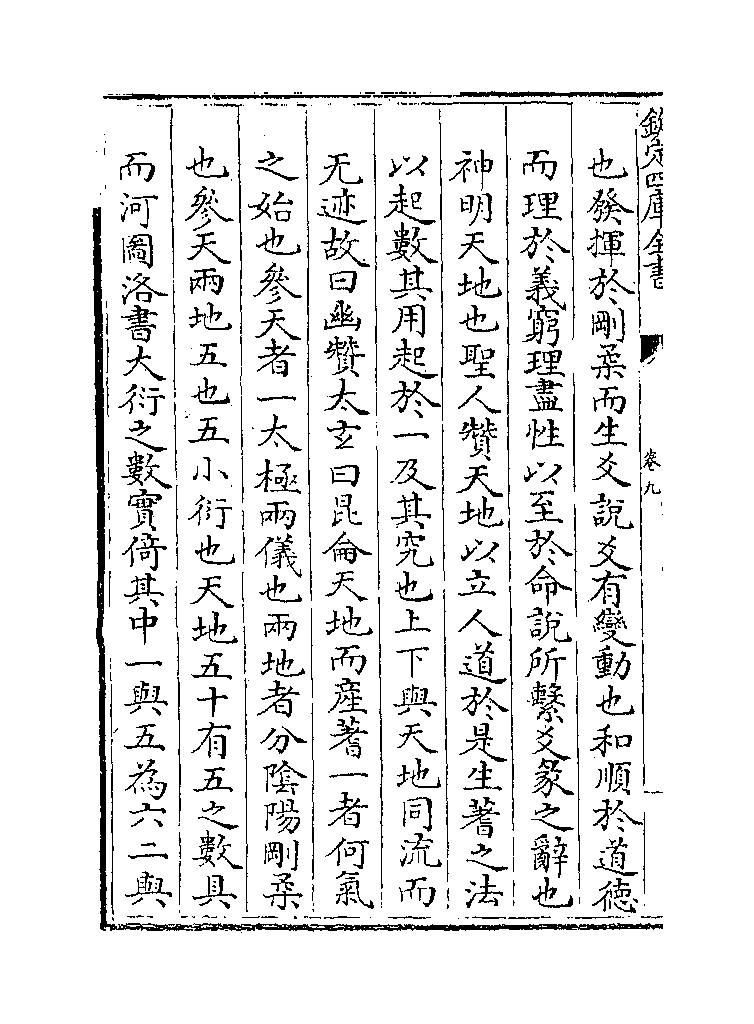 欽定四庫全書
卷九
也發揮於剛柔而生爻說爻有變動也和順於道德
而理於義窮理盡性以至於命說所繫爻彖之辭也
神明天地也聖人贊天地以立人道於是生蓍之法
以起數其用起於一及其究也上下與天地同流而
无迹故曰幽贊太𤣥曰昆侖天地而産蓍一者何氣
之始也參天者一太極兩儀也兩地者分陰陽剛柔
也參天兩地五也五小衍也天地五十有五之數具
而河圖洛書大衍之數實倚其中一與五為六二與